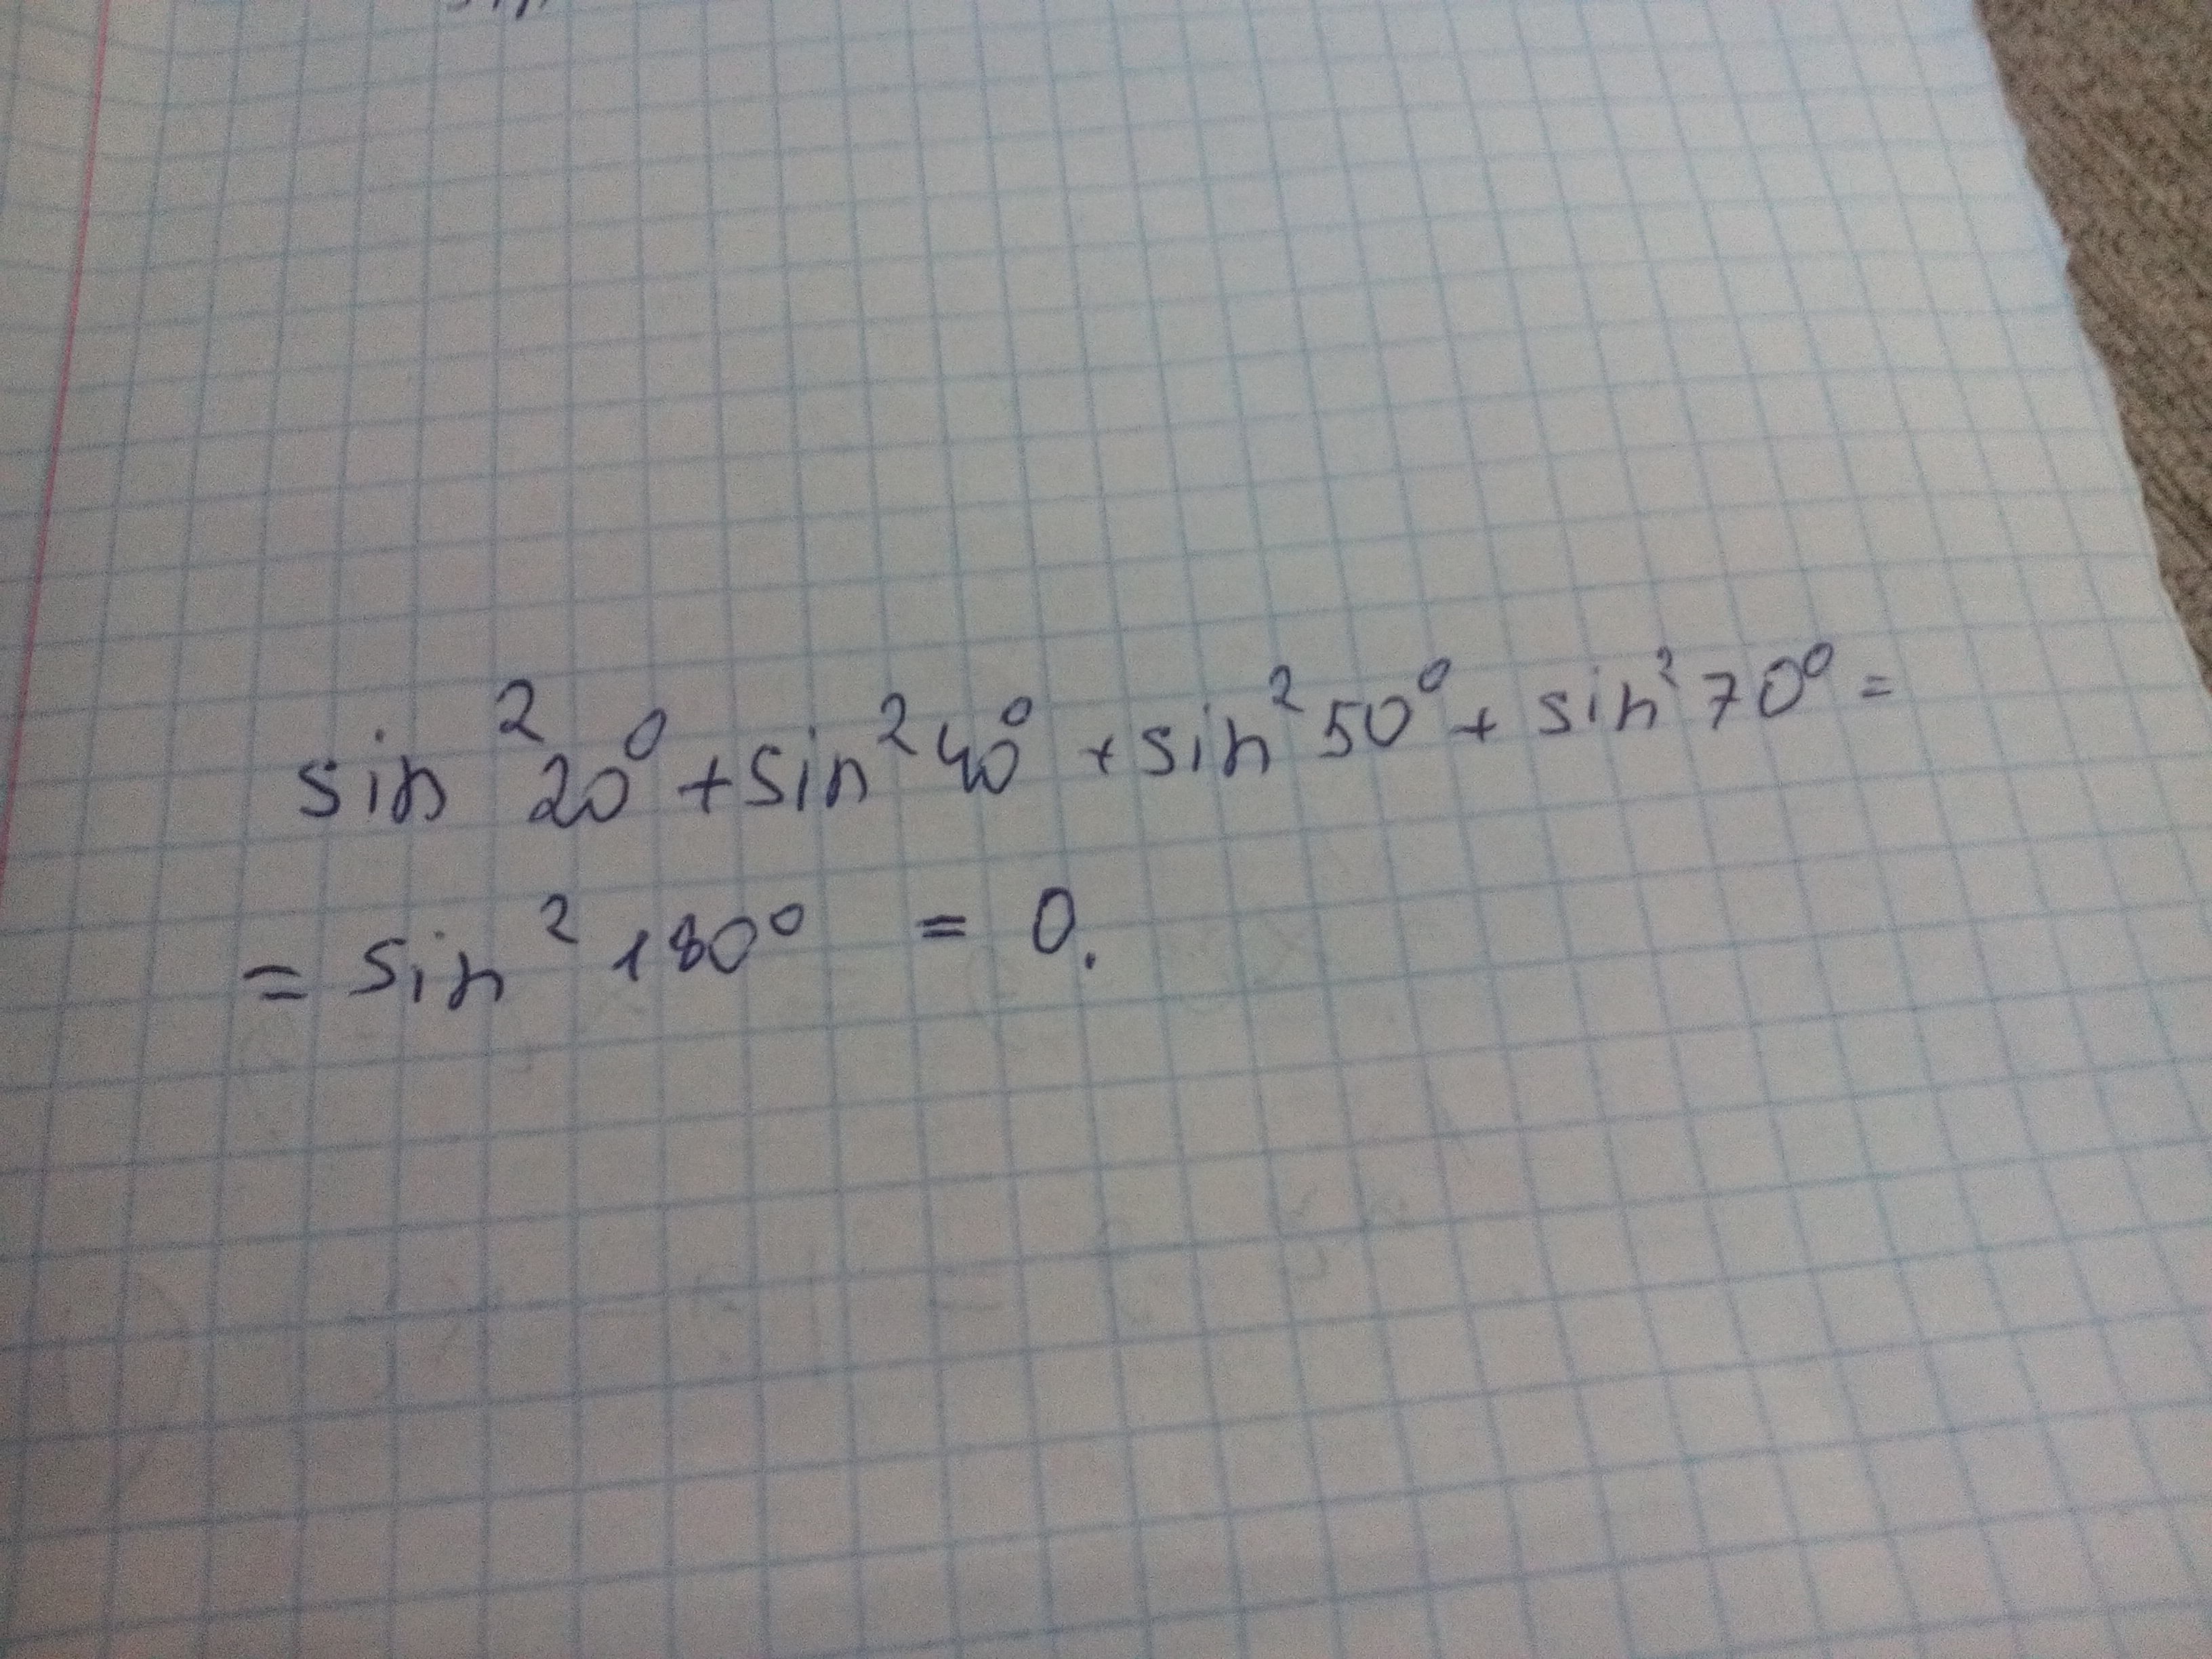 sin² 20⁰ + sin² 40⁰ + sin² 50⁰ + sin² 70⁰ =
= sin² 180⁰ = 0.